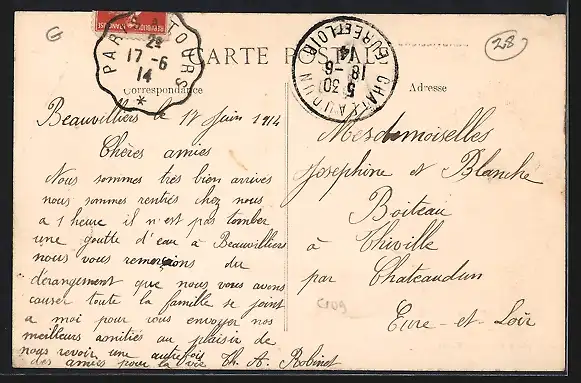 G
PARIS A TOURS
2E
17-6
14
CARTE POSTALE
CHATEAUDUN
5 30
18-6
14
EURE ET LOIR
258
Correspondance
Adresse
Beauvilliers le 17 Juin 1914
Chères amies
Nous sommes très bien arrivés
nous sommes rentrés chez nous
a 1 heure il n'est pas tomber
une goutte d'eau à Beauvilliers
nous vous remercions du
dérangement que nous vous avons
causer toute la famille se joint
a moi pour vous envoyer nos
meilleurs amitiés au plaisir de
nous revoir une autrefois
des amies pour la vie Th. A. Robinet
Mesdemoiselles
Josephine et Blanche
Boiteau
à Thiville
par Chateaudun
Eure-et-Loir